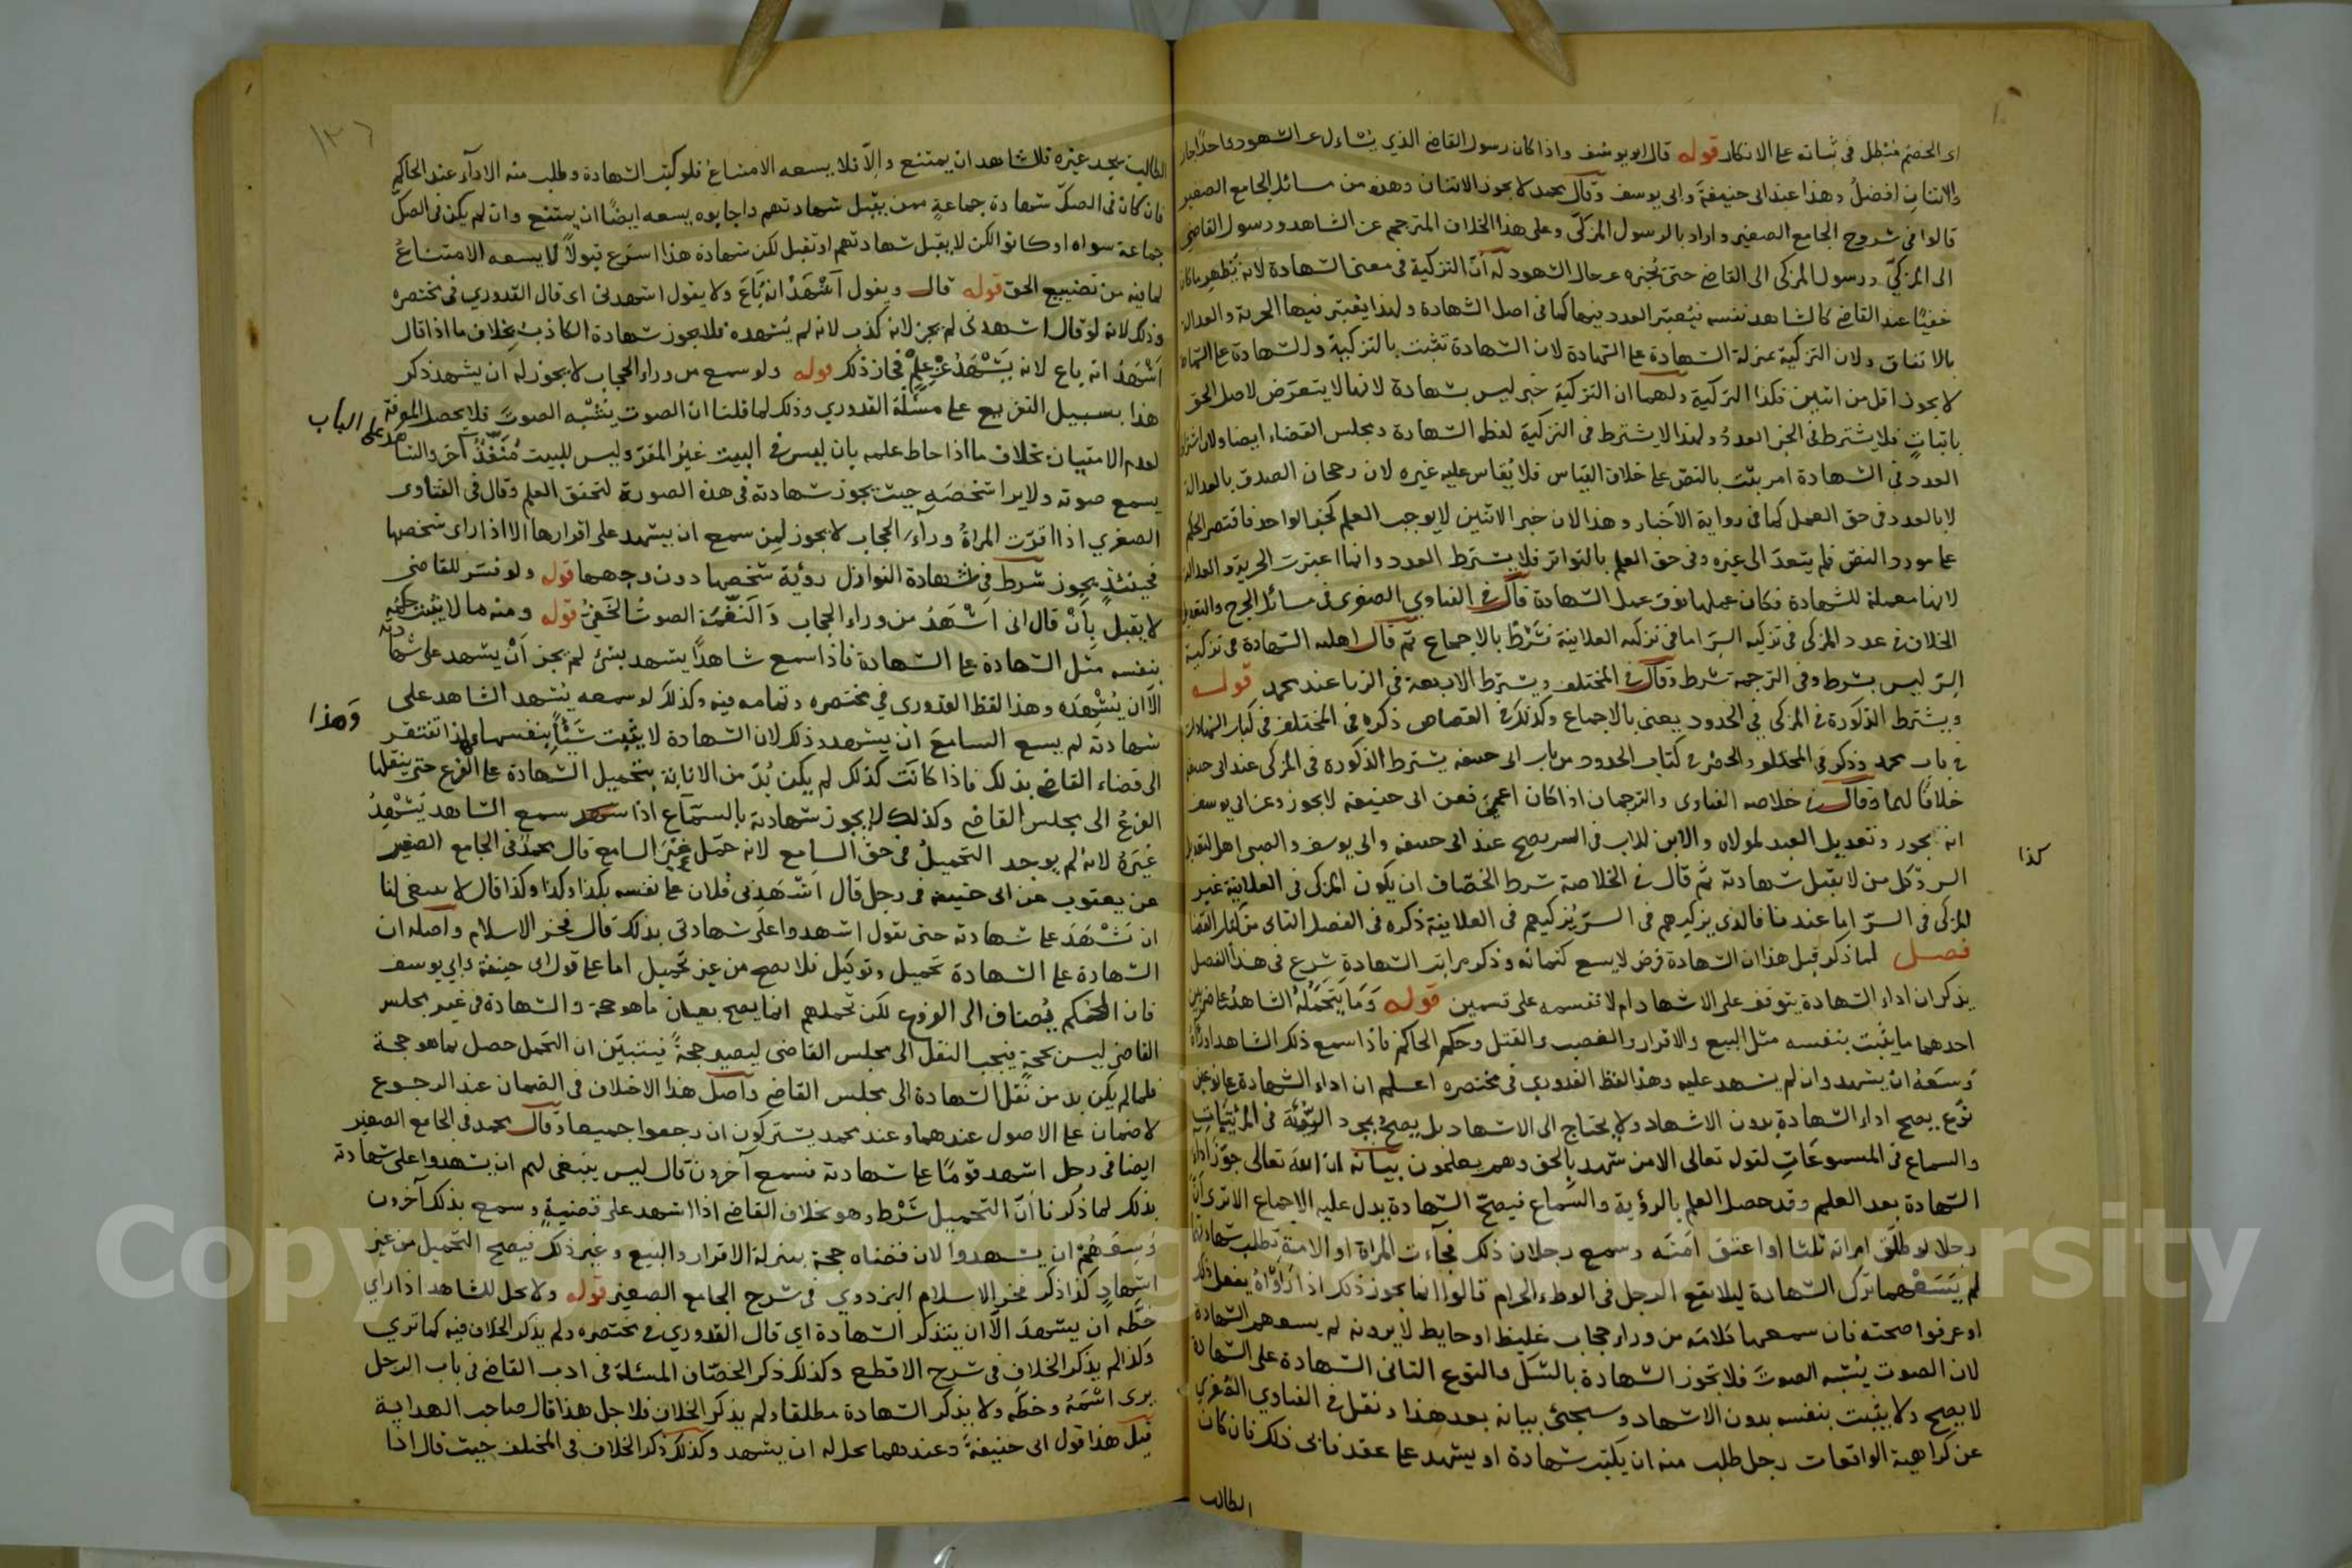 اى الخصم فتبطل فى ثباته على الانكار قوله قال ابو يوسف واذا كان رسول القاضى الذي يُسْاءل عن الشهود واحدًا جاز
والاثنان افضلُ وهذا عند ابى حنيفة وابى يوسف وقال محمد لا يجوز الا اثنان وهذه من مسائل الجامع الصغير
قالوا فى شروح الجامع الصغير واراد بالرسول المزكّى وعلى هذا الخلاف المترجم عن الشاهد ورسول القاضى
الى المزكيّ ورسول المزكى الى القاضى حتى يخبره عن حال الشهود له انّ التزكية فى معنى الشهادة لانه يظهر ما كان
خفيًا عند القاضى كالشاهد نفسه فيُعتبر العدد فيها كما فى اصل الشهادة ولهذا يعتبر فيها الحرية والعدالة
بالاتفاق ولان التزكية بمنزلة الشهادة على الشهادة لان الشهادة تثبت بالتزكية والشهادة على الشهادة
لا يجوز اقل من اثنين فكذا التزكية ولهما ان التزكية خبر ليس بشهادة لانها لا يتعرّض لاصل الحق
باثباتٍ فلا يشترط فى الخبر العددُ ولهذا لا يشترط فى التزكية لفظه الشهادة ومجلس القضاء ايضا ولان اشتراط
العدد فى الشهادة امر يثبت بالنصّ على خلاف القياس فلا يُقاس عليه غيره لان رجحان الصدق بالعدالة
لا بالعدد فى حق العمل كما فى رواية الأخبار وهذا لان خبر الاثنين لا يوجب العلم كخبر الواحد فاقتصر الحكم
على مورد النص فلم يتعدّ الى غيره وفى حق العلم بالتواتر فلا يشترط العدد وانما اعتبرت الحرية والعدالة
لانها معملة للشهادة فكان عملها فوق عمل الشهادة قال فى الفتاوي الصغرى فى مسائل الجرح والتعديل
الخلاف فى عدد المزكى فى تزكية السرّ اما فى تزكية العلانية شَرْطٌ بالاجماع ثم قال اهلية الشهادة فى تزكية
السِرّ ليس بشرط وفى الترجمة شرط وقال فى المختلف ويشترط الاربعة فى الزنا عند محمد قوله
ويشترط الذكورة فى المزكى فى الحدود يعنى بالاجماع وكذلك فى القصاص ذكره فى المختلف فى كتاب الشهادات
فى باب محمد وذكر فى المختلف والحصر فى كتاب الحدود من باب ابى حنيفة يشترط الذكورة فى المزكى عند ابى حنيفة
خلافًا لهما وقال فى خلاصة الفتاوى والترجمان اذا كان اعمى فعن ابى حنيفة لا يجوز وعن ابى يوسف
انه يجوز وتعديل العبد لمولاه والابن للاب فى السر يصح عند ابى حنيفة وابى يوسف والصبى اهل لتعديل
كذا
السر وكل من لا يقبل شهادته ثم قال فى الخلاصة شرط الخصّاف ان يكون المزكى فى العلانية غير
المزكى فى السرّ اما عندنا فالذى يزكيهم فى السرّ يُزكيهم فى العلانية ذكره فى الفصل الثانى من كتاب القضا
فصل لما ذكر قبل هذا ان الشهادة فرض لا يسع كتمانه وذكر مراتب الشهادة شرع فى هذا الفصل
يذكر ان اداء الشهادة يتوقف على الاشهاد ام لا تقسمه على قسمين قوله وَمَا يَتَحَمَّلهُ الشاهدُ على ضربين
احدهما ما يثبت بنفسه مثل البيع والاقرار والغصب والقتل وحكم الحاكم فاذا سمع ذلك الشاهد او رآهُ
وَسِعَهُ ان يشهد وان لم يشهد عليه وهذا لفظ القدوري فى مختصره اعلم ان اداء الشهادة على نوعين
نوع يصح اداء الشهادة بدون الاشهاد ولا يحتاج الى الاشهاد بل يصحّ بمجرد الرؤية فى المرئيات
والسماع فى المسموعَاتِ لقوله تعالى الا من شهد بالحق وهم يعلمون بيانه ان الله تعالى جوّز اداء
الشهادة بعد العلم وقد حصل العلم بالرؤية والسّماع فيصحّ الشهادة يدل عليه الاجماع الا ترى انّ
رجلا لو طلّق امراته ثلثا او اعتق امَتَه وسمع رجلان ذلك فجآءت المراة او الامة تطلب شهادتهما
لم يَسَعْهما ترك الشهادة ليلا يقع الرجل فى الوطء الحرام قالوا انما يجوز ذلك اذا رَاَوْاهُ يفعل ذلك
او عرفوا صحته فان سمعهما كلامه من وراء حجاب غليظ او حايط لا يرونه لم يسعهم الشهادة
لان الصوت يُشبه الصوتَ فلا تجوز الشهادة بالشكّ والنوع الثانى الشهادة على الشهادة
لا يصح ولا يثبت بنفسه بدون الاشهاد وسيجئ بيانه بعد هذا ونقل فى الفتاوي الصغري
عن كراهية الواقعات رجل طلب منه ان يكتب شهادة او يشهد على عقد فابى ذلك فان كان
الطالب
الطالب يجد غيره فللشاهد ان يمتنع والاّ فلا يسعه الامتناعُ فلو كتب الشهادة وطلب منه الاداء عند الحاكم
فان كان فى الصكّ شهادة جماعةٍ ممن يقبل شهادتهم واجابوه يسعه ايضًا ان يمتنع وان لم يكن فى الصكّ
جماعة سواه او كانوا لكن لا يقبل شهادتهم او تقبل لكن شهادة هذا اسرَع قبولاً لا يسعه الامتناعُ
لما فيه من تضييع الحق قوله قال ويقول أَشْهَدُ انه بَاعَ ولا يقول اشهدنى اى قال القدوري فى مختصره
وذلك لانه لو قال اشهدنى لم يجز لانه كذب لانه لم يُشهده فلا يجوز شهادة الكاذب بخلاف ما اذا قال
أشهَدُ انه باع لانه يَشْهَدُ عن علمٍ فجاز ذلك قوله ولو سمع من وراء الحجاب لا يجوز له ان يشهد ذكر
هذا بسبيل التفريع على مسئلة القدوري وذلك لما قلنا ان الصوت يُشبه الصوتَ فلا يحصل المعرفة
لعدم الامتياز بخلاف ما اذا احاط علمه بان ليس فى البيت غيرُ المقرّ وليس للبيت مَنْفَذٌ آخَر والشا
هد على الباب
يسمع صوته ولا يرا شخصَه حيث يجوز شهادته فى هذه الصورة لتحقق العلم وقال فى الفتاوى
الصغري اذا اقرّت المراةُ وراء الحجاب لا يجوز لمن سمع ان يشهد على اقرارها الا اذا راى شخصها
فحينئذٍ يجوز شرط فى شهادة النوازل رؤية شخصها دون وجهها قوله ولو فسّر للقاضى
لا يقبل بِأَنْ قال انى اَشْهَدُ من وراء الحجاب وَالنَغْمَة الصوتُ الخَفىُّ قوله ومنه ما لا يثبت حكمه
بنفسه مثل الشهادة على الشهادة فاذا سمع شاهدًا يشهد بشئ لم يجز أنْ يشهد على شهادته
الّا ان يُشْهِدَه وهذا لفظ القدورى فى مختصره وتمامه فيه وكذلك لو سمعه يُشهد الشاهد على
شهادته لم يسع السامعَ ان يشهد وذلك لان الشهادة لا يثبت شَيْئًا بنفسها ولهذا تفتقر
وَهذا
الى قضاء القاضى بذلك فاذا كانَت كذلك لم يكن بُدّ من الانابة بتحميل الشهادة على الفرع حتى ينقلها
الفرعُ الى مجلس القاضى وكذلك لا يجوز شهادته بالسّمَاع اذا سمع الشاهد يُشْهِدُ
غيرَهُ لانه لم يوجد التحميلُ فى حق السامع لانه حمّل غيرَ السامع قال محمدٌ فى الجامع الصغير
عن يعقوب عن ابى حنيفة فى رجل قال اَشْهَدَنى فلان على نفسه بكذا وكذا وكذا قال لا ينبغى لنا
ان نَشْهَدَ على شهادته حتى يقول اشهدوا على شهادتى بذلك قال فخر الاسلام واصله ان
الشهادة على الشهادة تحميل وتوكيل فلا يصح من غير تحميل اما على قول ابى حنيفة وابي يوسف
فان الحكم يُضاف الى الفروع لكن تحملهم انما يصح بعيان ما هو حجة والشهادة فى غير مجلس
القاضى ليس بحجةٍ فيجب النقل الى مجلس القاضى ليصير حجةً فيتبيّن ان التحمل حصل بما هو حجة
فلما لم يكن بد من نَقل الشهادة الى مجلس القاضى واصل هذا الاختلاف فى الضمان عند الرجوع
لا ضمان على الاصول عندهما وعند محمد يشتركون ان رجعوا جميعا وقال محمد فى الجامع الصغير
ايضا فى رجل اشهد قومًا على شهادته فسمع آخرون قال ليس ينبغى لهم ان يشهدوا على شهادته
بذلك لما ذكرنا أنّ التحميل شَرْط وهو بخلاف القاضى اذا اشهد على قضيةٍ وسمع بذلك آخرون
وَسِعَهُمْ ان يشهدوا لان قضاه حجة بمنزلة الاقرار والبيع وغير ذلك فيصح التحميل من غير
اشهادٍ كذا ذكر فخر الاسلام البزدوي فى شرح الجامع الصغير قوله ولا يحل للشاهد اذا راي
خطّه ان يشهدَ الّا ان يتذكر الشهادة اي قال القدوري فى مختصره ولم يذكر الخلاف فيه كما تري
وكذا لم يذكر الخلاف فى شرح الاقطع وكذلك ذكر الخصّاف المسئلة فى ادب القاضى فى باب الرجل
يرى اسْمَهُ وخطَّه ولا يذكر الشهادة مطلقا ولم يذكر الخلاف فلاجل هذا قال صاحب الهداية
قيل هذا قول ابى حنيفةَ وعندهما يحل له ان يشهد وكذلك ذكر الخلاف فى المختلف حيث قال اذا
Copyright © King Saud University